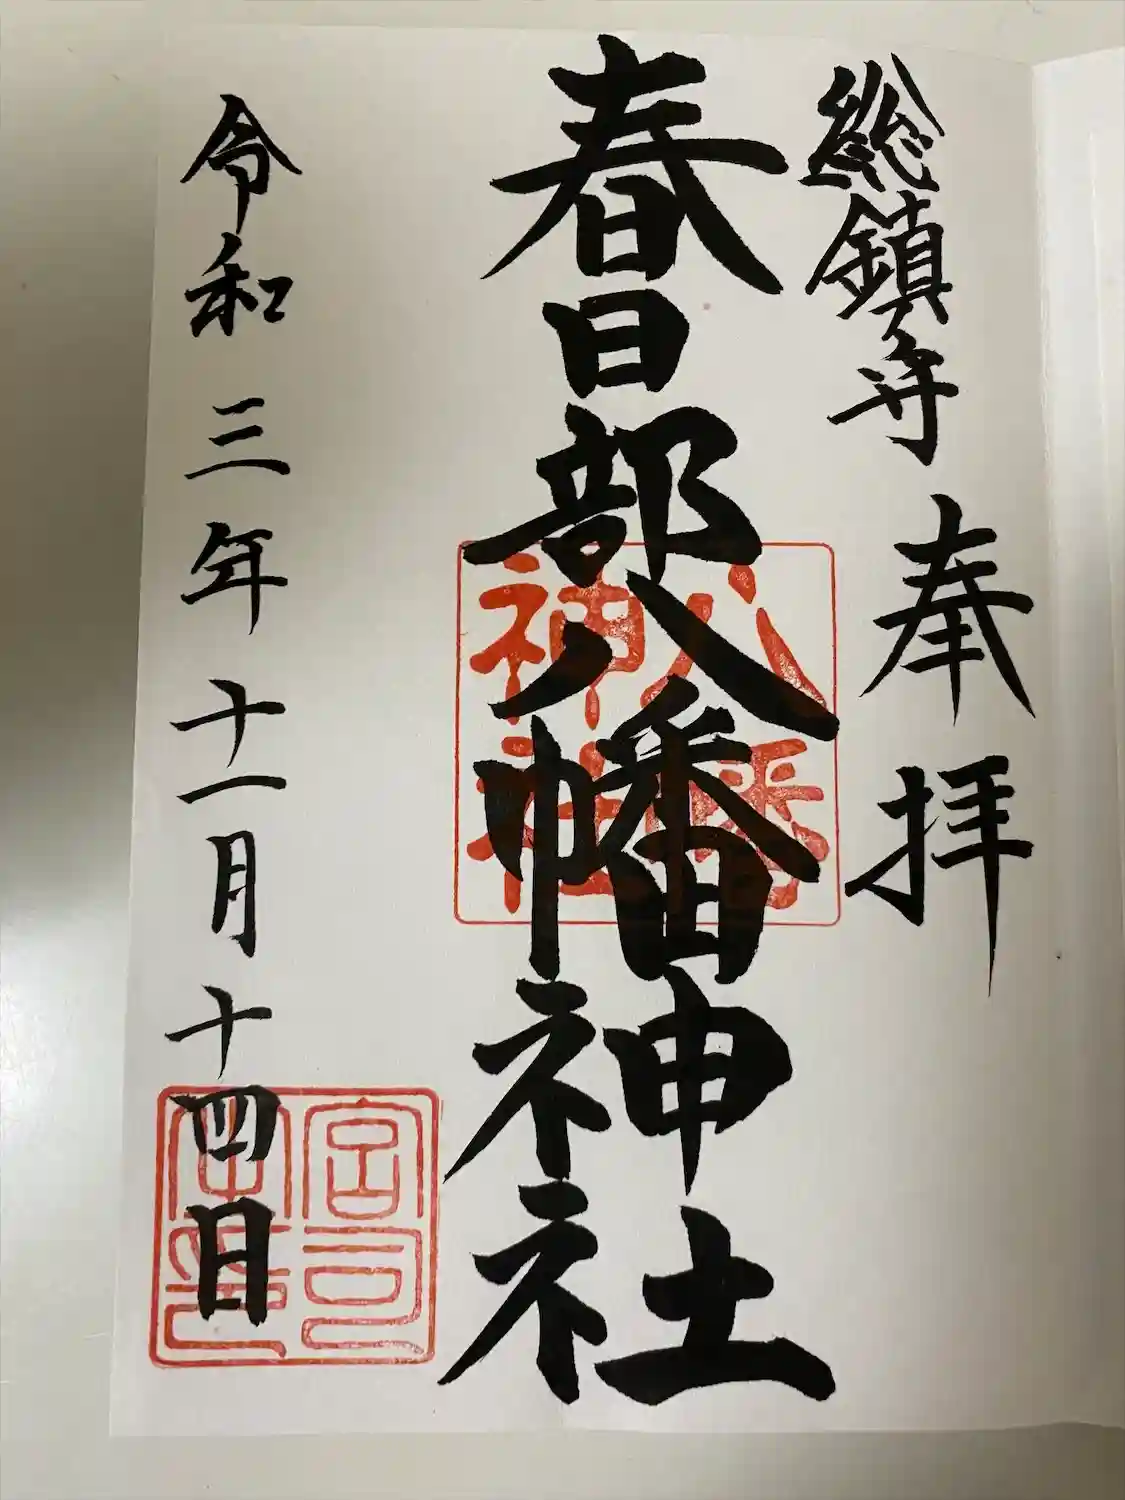 総鎮守
奉拝
春日部八幡神社
令和三年十一月十四日
八幡
神社
宮司
之印